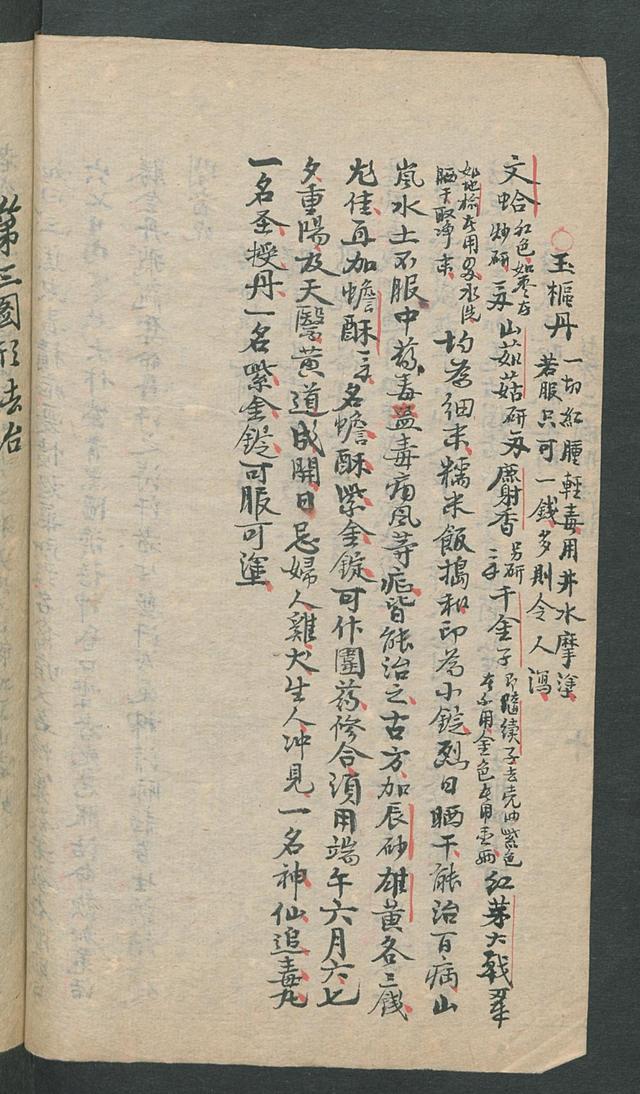 玉樞丹 一切紅腫輕毒用井水摩塗
若服只可一錢多則令人瀉
文蛤 紅色如棗者
炒研 山茹菇 研 麝香 另研
千金子 即隨續子去壳油紫色
者不用金色者用 紅芽大戟
如地榆者用 水洗
晒干取淨末 均為細末糯米飯搗和印為小錠烈日晒干能治百病山
嵐水土不服中蒸毒蛊毒痛風等症皆能治之古方加辰砂雄黃各三錢
尤佳再加蟾酥 名蟾酥紫金錠可作圍药修合須用端午六月六七
夕重陽及天醫黃道成開日忌婦人雞犬生人冲見一名神仙追毒丸
一名圣授丹一名紫金錠可服可塗
第三圖形去治